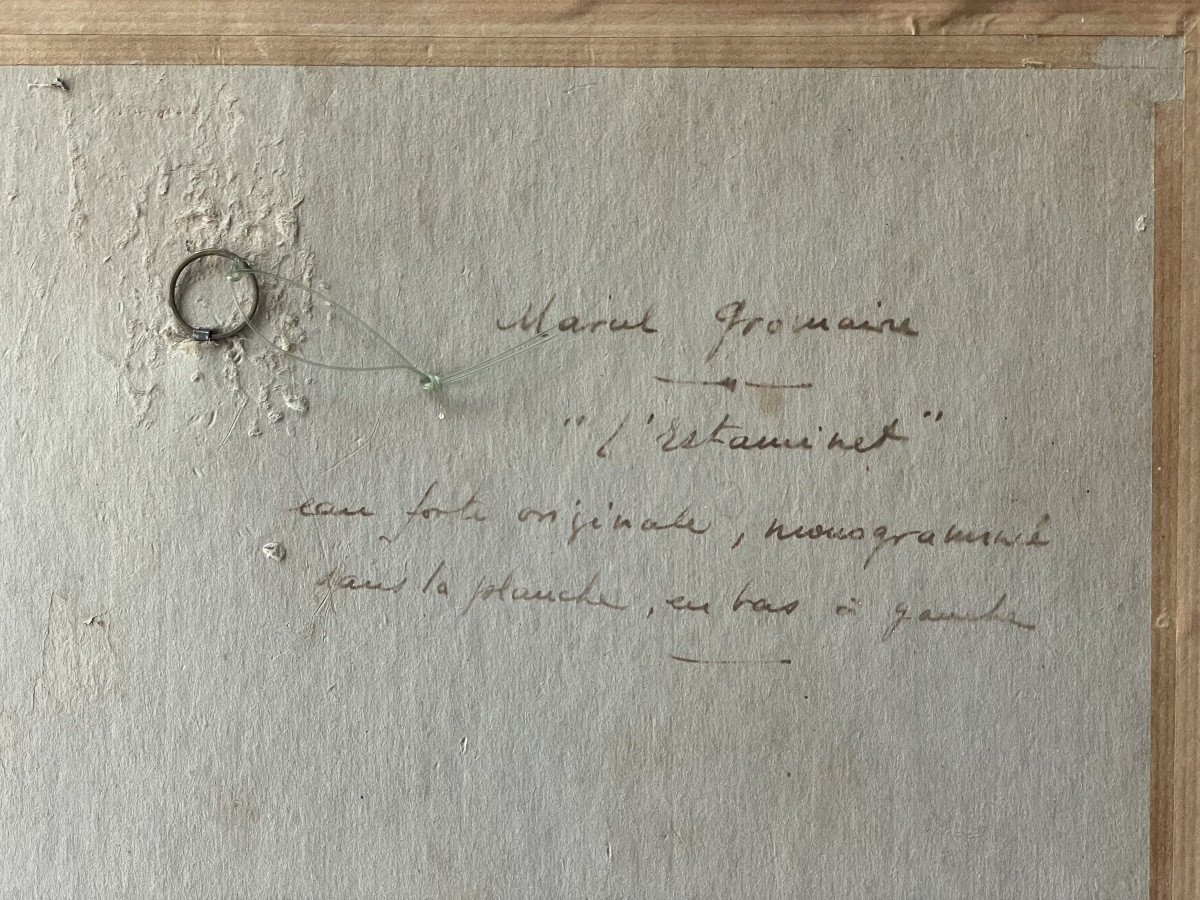 Marcel Gromaire
"l'Estaminet"
eau forte originale, monogrammée
dans la planche, en bas à gauche